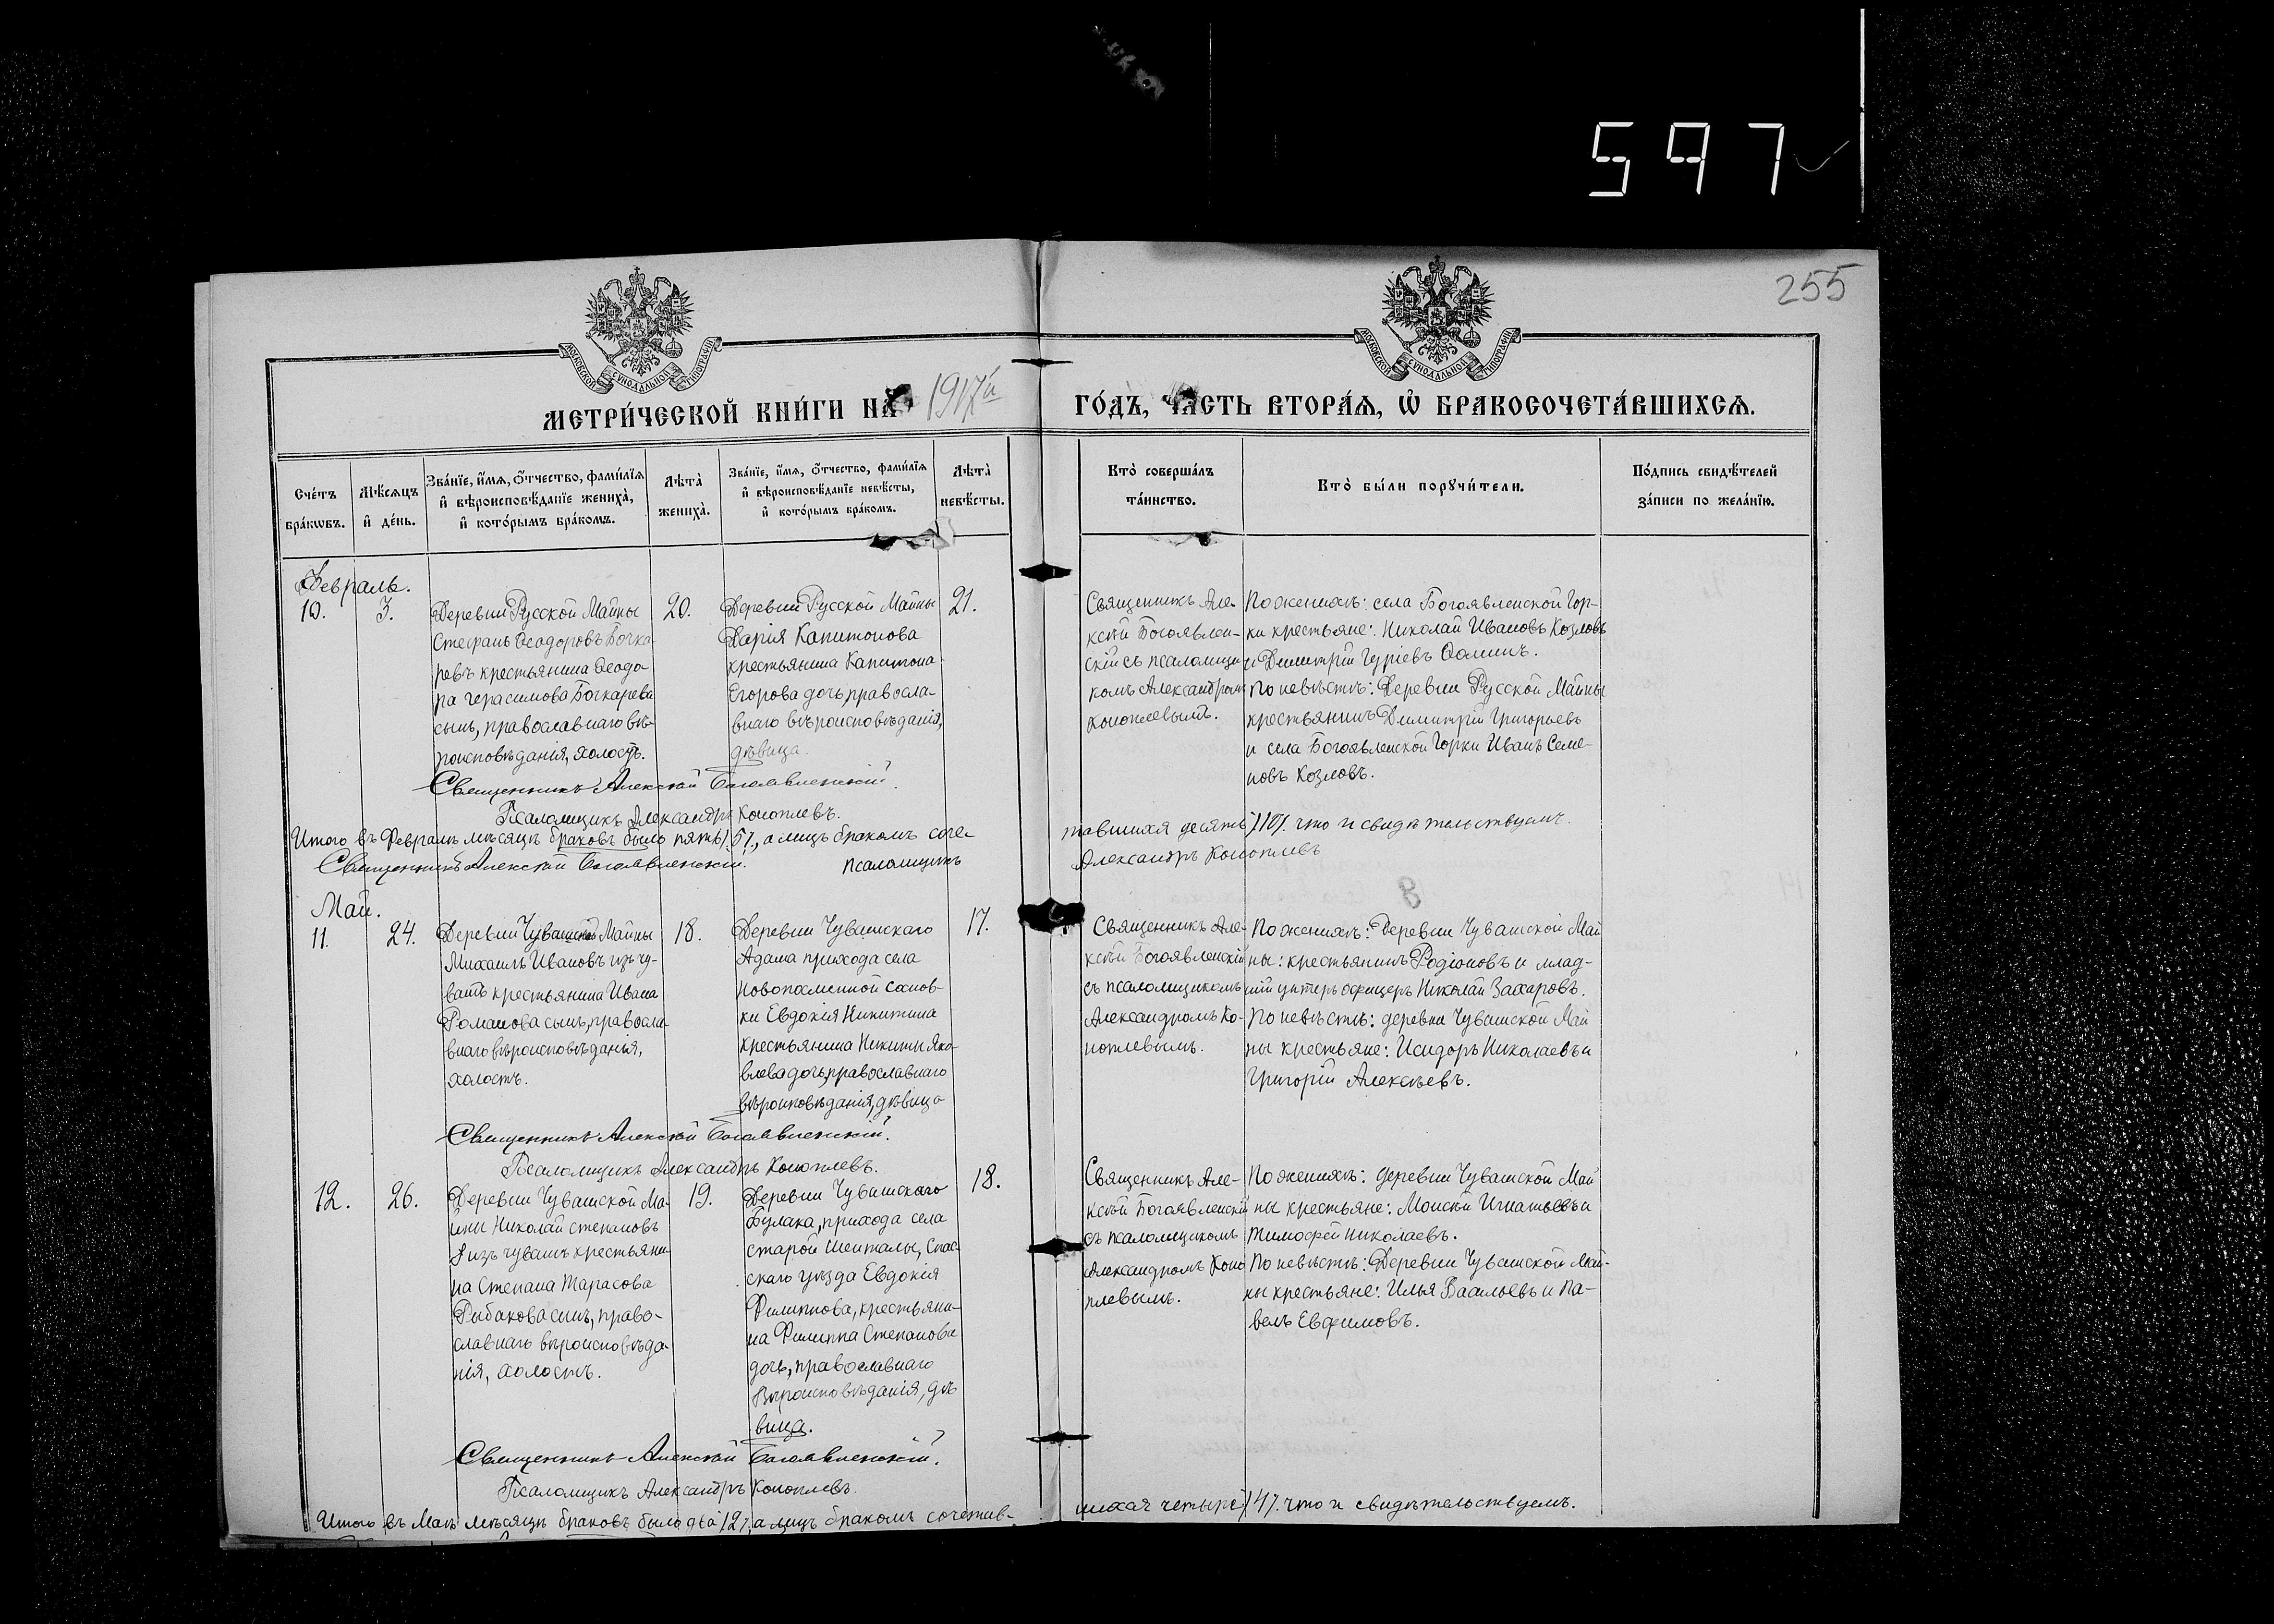 597
255
МОСКОВСКОЙ СѴНОДАЛЬНОЙ ТИПОГРАФІИ
МОСКОВСКОЙ СѴНОДАЛЬНОЙ ТИПОГРАФІИ
МЕТРИ́ЧЕСКОЙ КНИ́ГИ НА 1917й ГО́ДЪ, ЧА́СТЬ ВТОРА́Ѧ, Ѽ БРАКОСОЧЕТА́ВШИХСѦ.
Сче́тъ
бра́кѡвъ.
Мѣ́сѧцъ
и҆ де́нь.
Зва́нїе, и҆́мѧ, ѻ҆́тчество, фами́лїѧ
и҆ вѣроисповѣ́данїе жениха̀,
и҆ кото́рымъ бра́комъ.
Лѣта̀
жениха̀.
Зва́нїе, и҆́мѧ, ѻ҆́тчество, фами́лїѧ
и҆ вѣроисповѣ́данїе невѣ́сты,
и҆ кото́рымъ бра́комъ.
Лѣта̀
невѣ́сты.
Кто̀ соверша́лъ
та́инство.
Кто̀ бы́ли порꙋчи́тели.
По́дпись свидѣ́телей
за́писи по жела́нїю.
Февраль.
10.
3.
Деревни Русской Майны
Стефанъ Ѳеодоровъ Бочка
ревъ крестьянина Ѳеодо
ра Герасимова Бочкарева
сынъ, православнаго вѣ-
роисповѣданія, холостъ.
20.
Деревни Русской Майны
Дарія Капитонова
крестьянина Капитона
Егорова дочь, правосла-
внаго вѣроисповѣданія,
дѣвица.
21.
Священникъ Але-
ксѣй Богоявлен-
скій съ псаломщи
комъ Александромъ
Коноплевымъ.
По женихѣ: села Богоявленской Гор-
ки крестьяне: Николай Ивановъ Козловъ
и Димитрій Гуріевъ Ѳоминъ.
По невѣстѣ: Деревни Русской Майны
крестьянинъ Димитрій Григорьевъ
и села Богоявленской Горки Иванъ Семе-
новъ Козловъ.
Священникъ Алексѣй Богоявленскій.
Псаломщикъ Александръ Коноплевъ.
Итого въ Февралѣ мѣсяцѣ браковъ было пять /5/, а лицъ бракомъ соче- тавшихся десять /10/. что и свидѣтельствуемъ.
Священникъ Алексѣй Богоявленскій. псаломщикъ Александръ Коноплевъ
Май.
11.
24.
Деревни Чувашской Майны
Михаилъ Ивановъ изъ чу-
вашъ крестьянина Ивана
Романова сынъ, правосла-
внаго вѣроисповѣданія,
холостъ.
18.
Деревни Чувашскаго
Адама прихода села
Новопоменной Соснов-
ки Евдокія Никитина
крестьянина Никиты Яко-
влева дочь, православнаго
вѣроисповѣданія, дѣвица
17.
Священникъ Але-
ксѣй Богоявленскій
съ псаломщикомъ
Александромъ Ко-
ноплевымъ.
По женихѣ: Деревни Чувашской Май
ны: крестьянинъ Родіоновъ и млад-
шій унтеръ офицеръ Николай Захаровъ.
По невѣстѣ: деревни Чувашской Май
ны крестьяне: Исидоръ Николаевъ и
Григорій Алексѣевъ.
Священникъ Алексѣй Богоявленскій.
Псаломщикъ Александръ Коноплевъ.
12.
26.
Деревни Чувашской Ма-
йны Николай Степановъ
изъ чувашъ крестьяни
на Степана Тарасова
Рыбакова сынъ, право-
славнаго вѣроисповѣда-
нія, холостъ.
19.
Деревни Чувашскаго
Булака, прихода села
Старой Шенталы, Спас-
скаго уѣзда Евдокія
Филиппова, крестьяни-
на Филиппа Степанова
дочь, православнаго
Вѣроисповѣданія, дѣ
вица.
18.
Священникъ Але-
ксѣй Богоявленскій
съ псаломщикомъ
Александромъ Коно
плевымъ.
По женихѣ: деревни Чувашской Май
ны крестьяне: Моисей Игнатьевъ и
Тимофей Николаевъ.
По невѣстѣ: Деревни Чувашской Май-
ны крестьяне: Илья Васильевъ и Па-
велъ Евфимовъ.
Священникъ Алексѣй Богоявленскій.
Псаломщикъ Александръ Коноплевъ.
Итого въ Маѣ мѣсяцѣ браковъ было два /2/, а лицъ бракомъ сочетав- шихся четыре /4/. что и свидѣтельствуемъ.